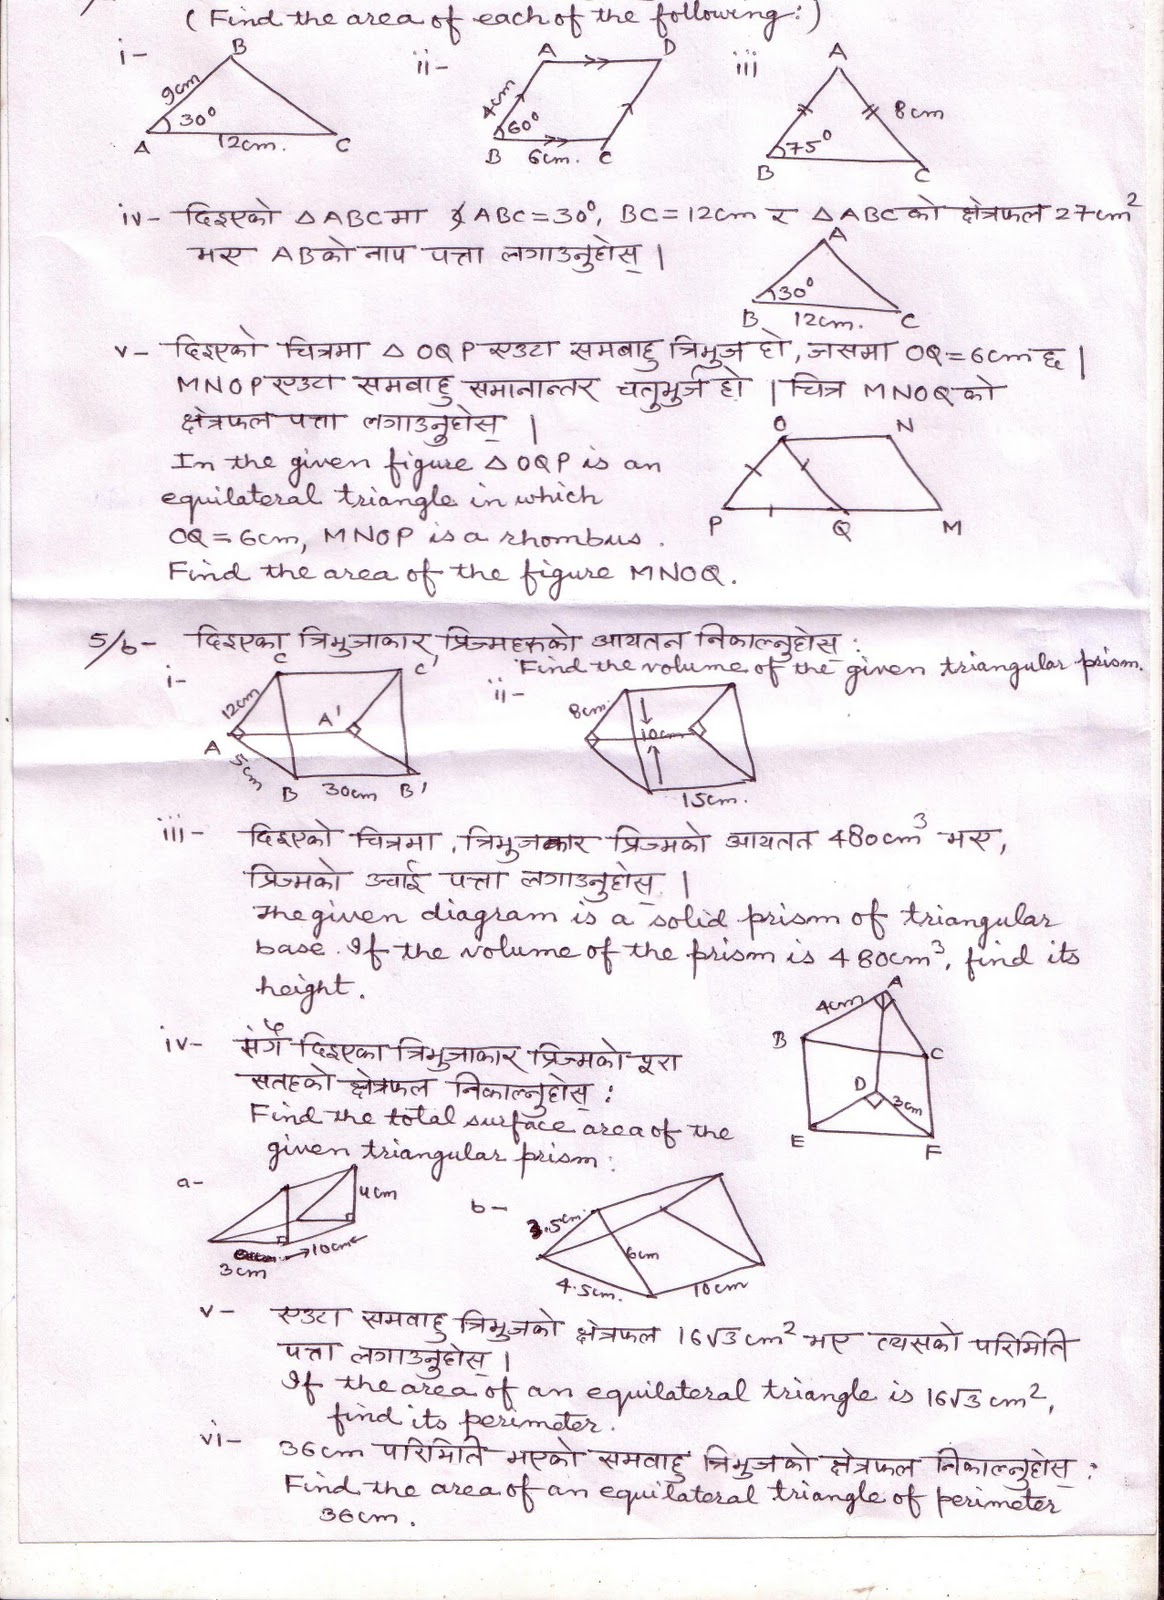 (Find the area of each of the following:)
i-
B
9cm
30°
A
12cm.
C
ii-
A
D
4cm
60°
B
6cm.
C
iii
A
8cm
75°
B
C
iv- दिइएको △ABCमा ∡ABC=30°, BC=12cm र △ABCको क्षेत्रफल 27cm²
भए ABको नाप पत्ता लगाउनुहोस् |
A
30°
B
12cm.
C
v- दिइएको चित्रमा △OQP एउटा समबाहु त्रिभुज हो, जसमा OQ=6cm छ |
MNOP एउटा समबाहु समानान्तर चतुर्भुज हो | चित्र MNOQको
क्षेत्रफल पत्ता लगाउनुहोस् |
In the given figure △OQP is an
equilateral triangle in which
OQ=6cm, MNOP is a rhombus.
Find the area of the figure MNOQ.
O
N
P
Q
M
5/b- दिइएका त्रिभुजाकार प्रिज्महरुको आयतन निकाल्नुहोस्:
Find the volume of the given triangular prism.
i-
C
C'
12cm
A'
A
5cm
B
30cm
B'
ii-
8cm.
10cm
15cm.
iii- दिइएको चित्रमा, त्रिभुजकार प्रिज्मको आयतन 480cm³ भए,
प्रिज्मको उचाई पत्ता लगाउनुहोस् |
The given diagram is a solid prism of triangular
base. If the volume of the prism is 480cm³, find its
height.
A
4cm
B
C
D
3cm
E
F
iv- सँगै दिइएका त्रिभुजाकार प्रिज्मको पूरा
सतहको क्षेत्रफल निकाल्नुहोस् :
Find the total surface area of the
given triangular prism:
a-
4cm
10cm
3cm
b-
3.5cm.
6cm
4.5cm.
10cm
v- एउटा समबाहु त्रिभुजको क्षेत्रफल 16√3 cm² भए त्यसको परिमिति
पत्ता लगाउनुहोस् |
If the area of an equilateral triangle is 16√3 cm²,
find its perimeter.
vi- 36cm परिमिति भएको समबाहु त्रिभुजको क्षेत्रफल निकाल्नुहोस् :
Find the area of an equilateral triangle of perimeter
36cm.